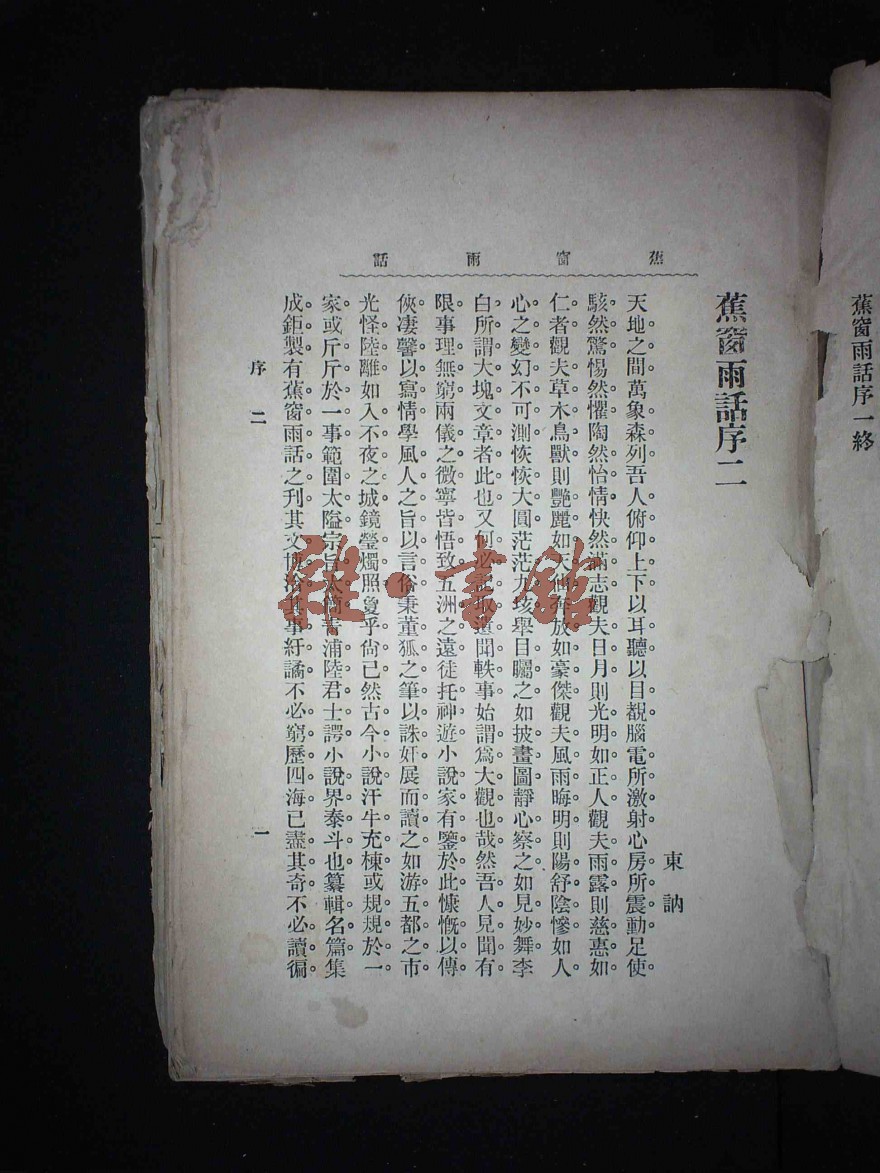 蕉窗雨話序一終
蕉窗雨話
蕉窗雨話序二
東訥
天地之間萬象森列吾人俯仰上下以耳聽以目覩腦電所激射心房所震動足使
駭然驚惕然懼陶然怡情快然滿志觀夫日月則光明如正人觀夫雨露則慈惠如
仁者觀夫草木鳥獸則艷麗如天仙奔放如豪傑觀夫風雨晦明則陽舒陰慘如人
心之變幻不可測恢恢大圓茫茫九垓舉目矚之如披畫圖靜心察之如見妙舞李
白所謂大塊文章者此也又何必遺聞軼事始謂爲大觀也哉然吾人見聞有
限事理無窮兩儀之微寧皆悟致五洲之遠徒托神遊小說家有鑒於此慷慨以傳
俠凄馨以寫情學風人之旨以言俗秉董狐之筆以誅奸展而讀之如游五都之市
光怪陸離如入不夜之城鏡瑩燭照敻乎尙已然古今小說汗牛充棟或規規於一
家或斤斤於一事範圍太隘宗旨太簡靑浦陸君士諤小說界泰斗也纂輯名篇集
成鉅製有蕉窗雨話之刋其文博洽其事紆譎不必窮歷四海已盡其奇不必讀徧
序二
一
雅·書館